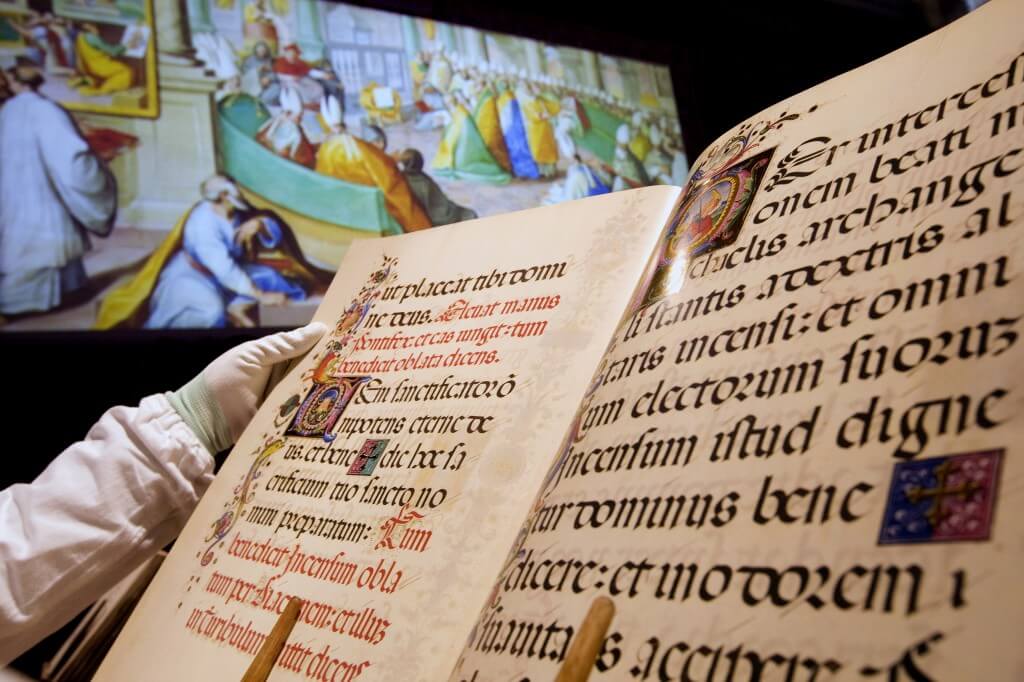 ut placeat tibi domi
ne deus. Eleuat manus
pontifex et eas iungit: tum
benedicit oblata dicens.
Ueni sanctificator õ
nipotens eterne de
us. et bene ✠ dic hoc sa
crificium tuo sancto no
mini preparatum: Tum
benedicit Incensum obla
tum per Diaconem: et illud
in thuribulum mittit dicens
Per intercessi
onem beati m
chaelis archange
li stantis a dextris al
taris incensi: et omni
um electorum suoruz
incensum istud digne
tur dominus bene ✠
dicere: et in odorem
suauitatis accipere